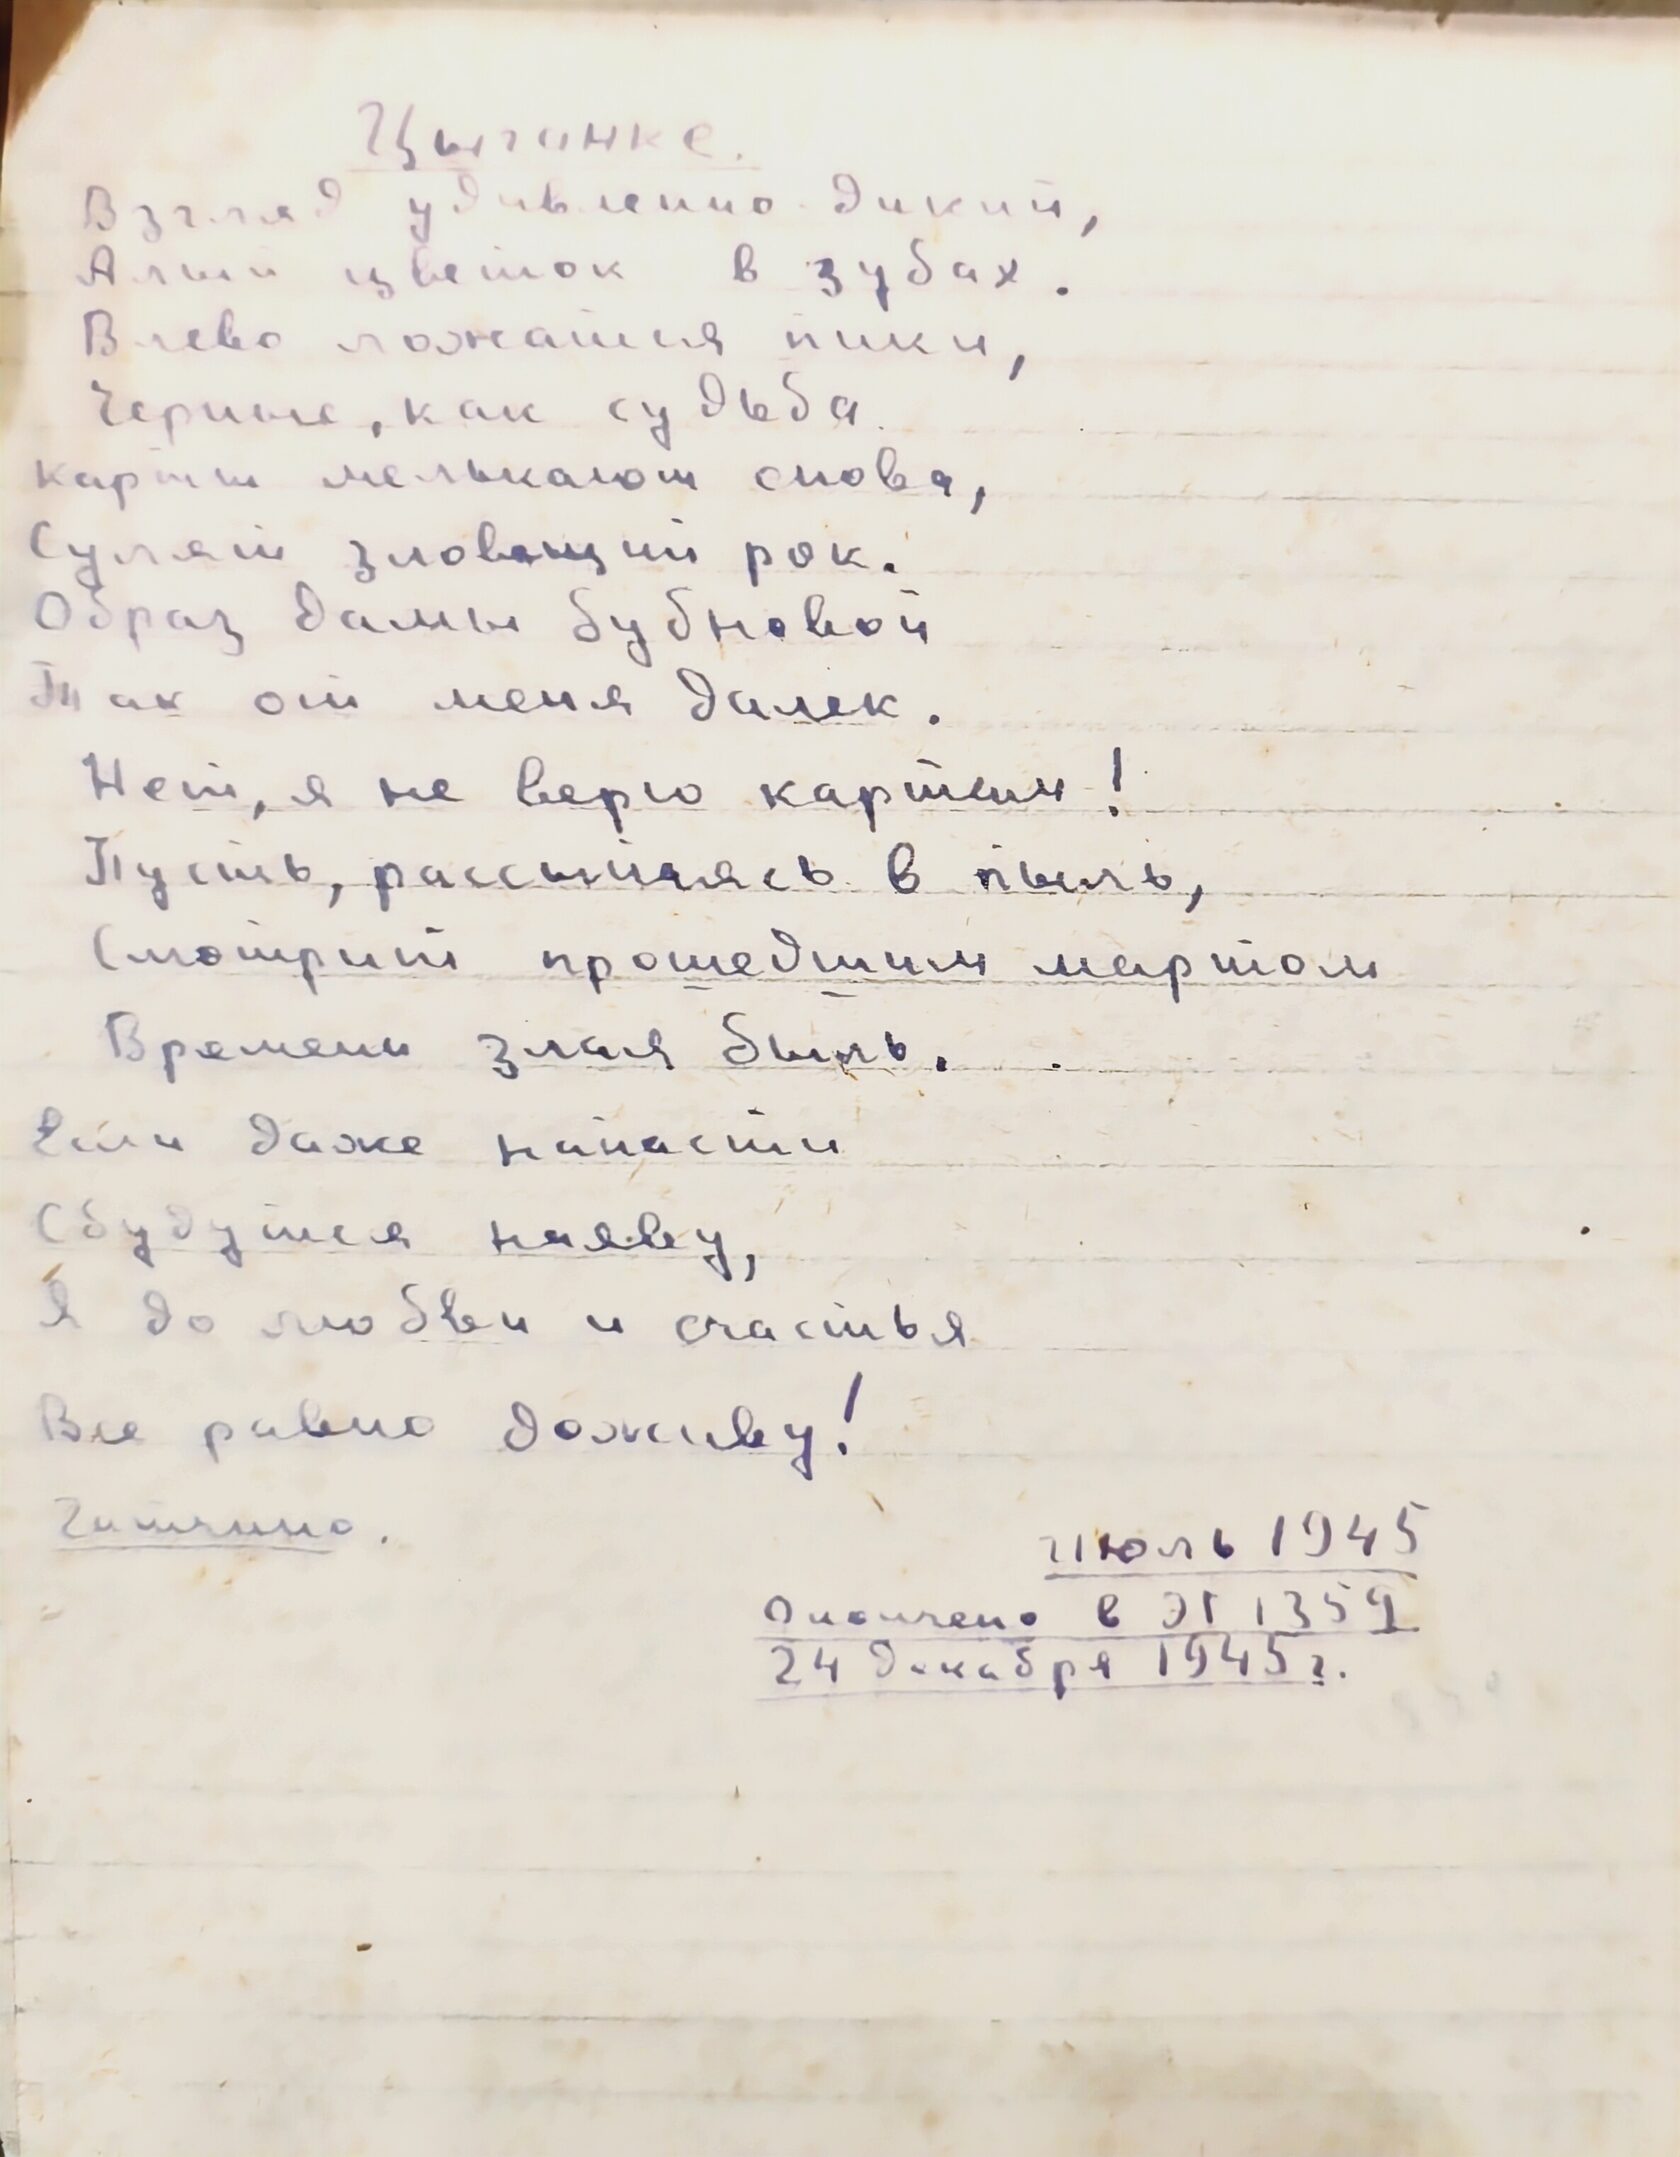 Цыганке.
Взгляд удивленно-дикий,
Алый цветок в зубах.
Влево ложатся пики,
Черные, как судьба.
Карты мелькают снова,
Сулят зловещий рок.
Образ дамы бубновой
Так от меня далек.
Нет, я не верю картам!
Пусть, рассыпаясь в пыль,
Смотрит прошедшим мартом
Времени злая быль.
Если даже напасти
Сбудутся наяву,
Я до любви и счастья
Все равно доживу!
Гатчино.
Июль 1945
Окончено в ЭГ 1359
24 декабря 1945 г.